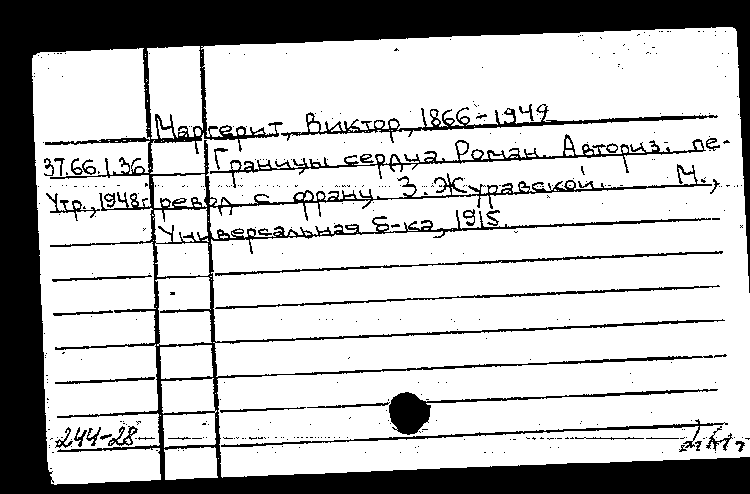 Маргерит, Виктор, 1866-1942
37.66.1.36 Границы сердца. Роман. Авториз. пе-
Утр., 1948г. ревод с франц. З. Журавской. М.,
Универсальная б-ка, 1915.
244-28